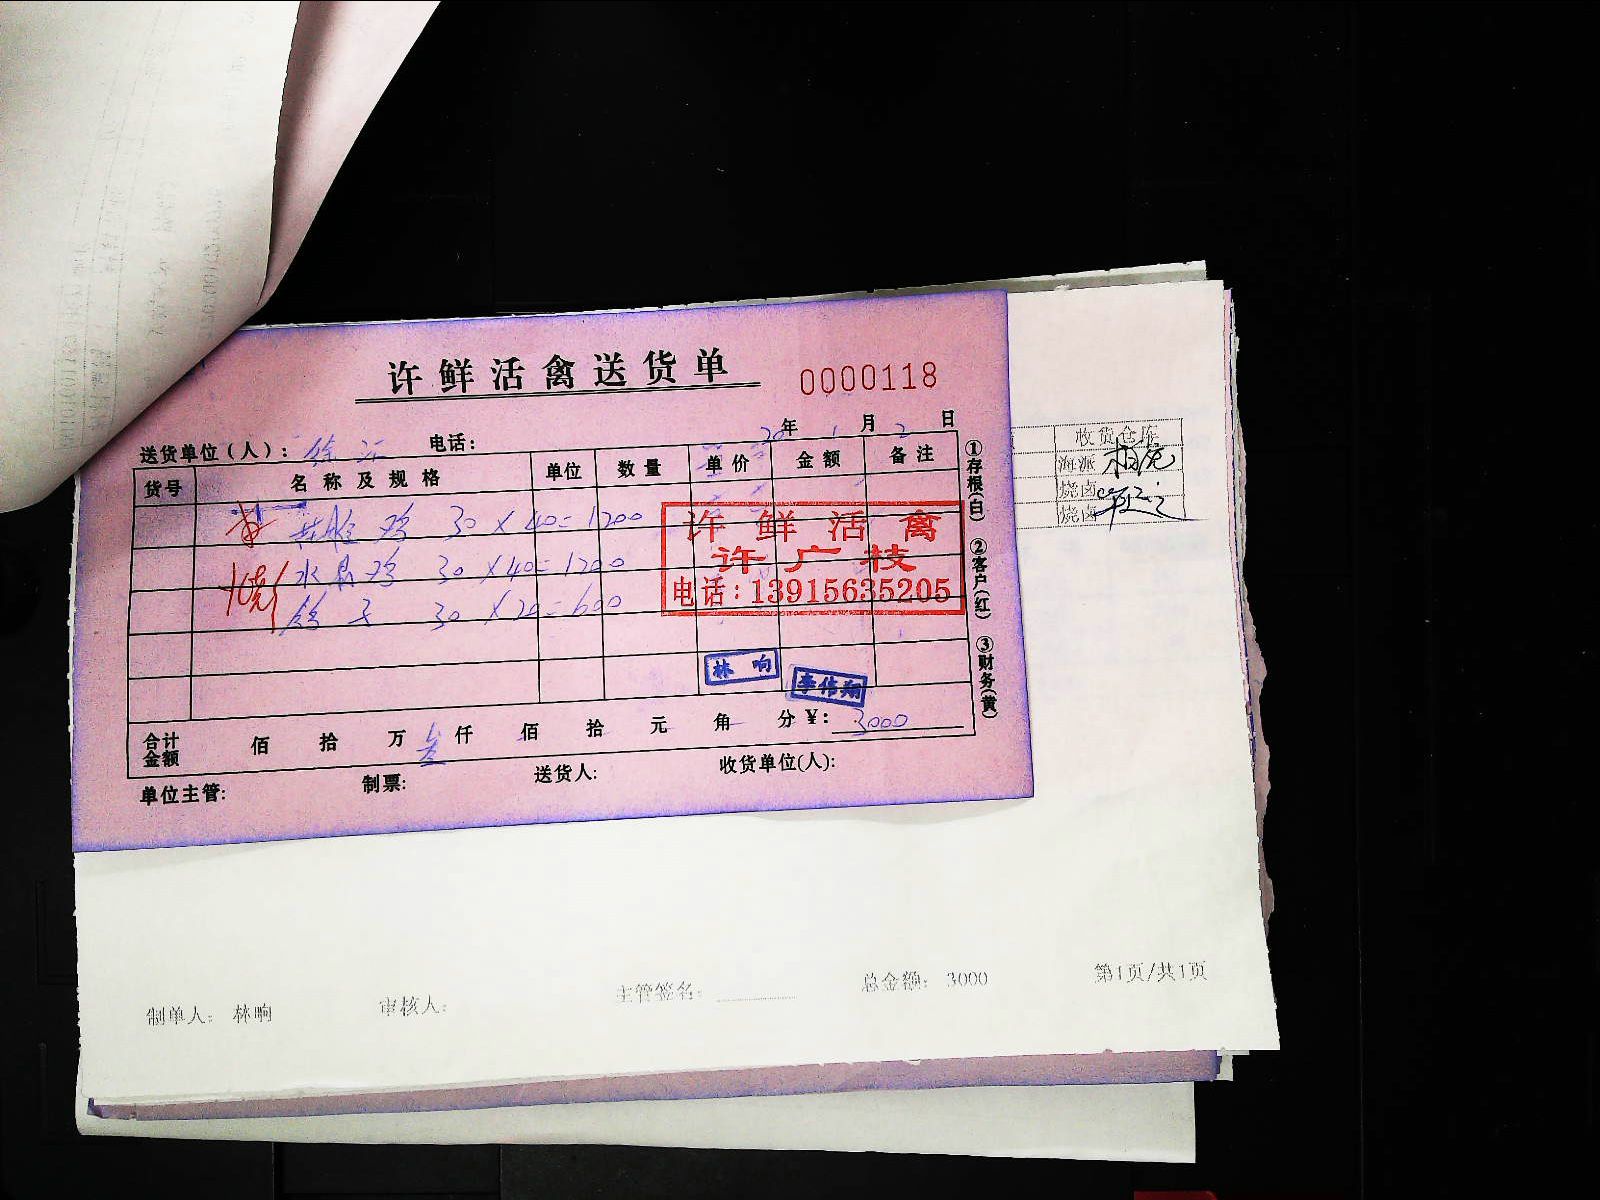 许鲜活禽送货单 0000118
送货单位(人): 徐 电话: 20年 1月 2日
货号 名称及规格 单位 数量 单价 金额 备注
鸡 30×40=1200
烧 水晶鸡 30×40=1200
鸽子 30×20=600
许鲜活禽
许广枝
电话:13915635205
林响
李伟翔
合计金额 佰 拾 万 叁仟 佰 拾 元 角 分 ¥: 3000
单位主管: 制票: 送货人: 收货单位(人):
①存根(白) ②客户(红) ③财务(黄)
收货仓库
海派
烧卤
烧卤
制单人: 林响 审核人: 主管签名: 总金额: 3000 第1页/共1页